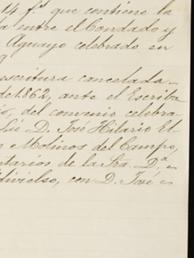 14 f.s que contiene la
a entre el Condado y
Aguayo celebrado en
escritura cancelada
de 1862, ante el Escriba
io, del convenio celebra
D. José Hilario
Molinos del Campo,
ntarios de la Sra. D.a
con D. José